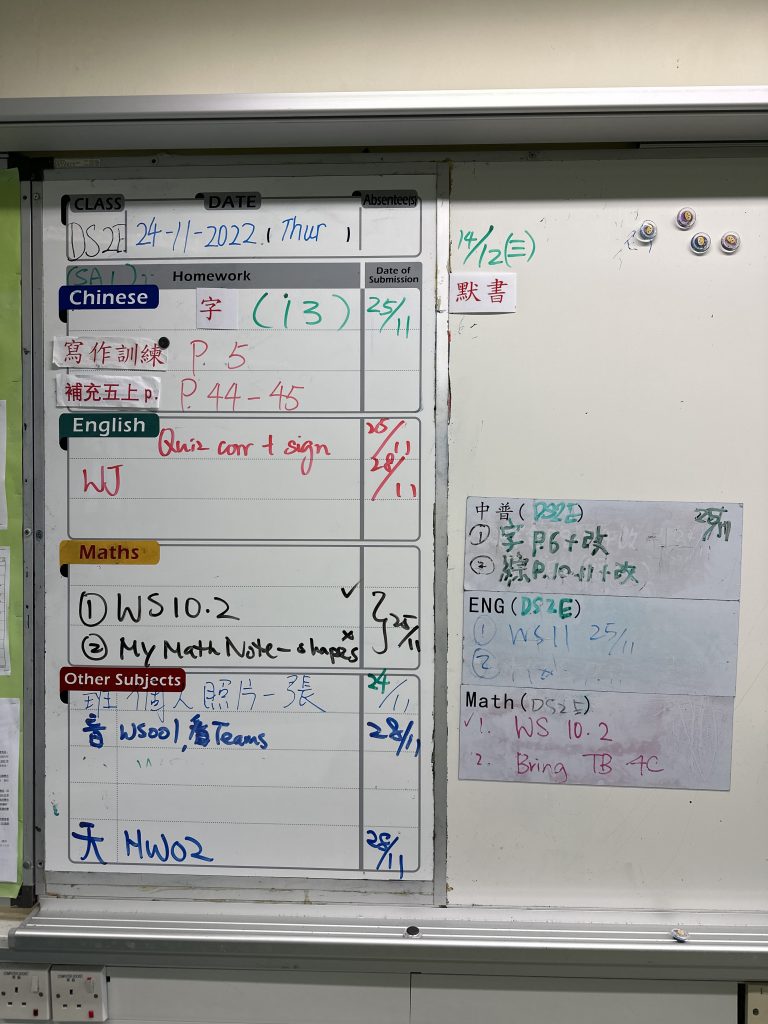 CLASS DATE Absentee(s)
DS2E 24-11-2022 ( Thur )
(SA1) Homework Date of Submission
Chinese 字 (13) 25/11
寫作訓練 P. 5
補充五上 p. P. 44-45
English Quiz corr + sign 25/11
WJ 28/11
Maths
① WS 10.2 ✓
② My Math Note-shapes } 25/11
Other Subjects
班 個人照片一張 24/11
音 WS001, Teams 28/11
天 HW02 28/11
14/12(三)
默書
中普(DS2E) 25/11
① 字 P.6+改
② 綜 P.10-11+改
ENG(DS2E)
① WS11 25/11
②
Math(DS2E)
✓1. WS 10.2
2. Bring TB 4C